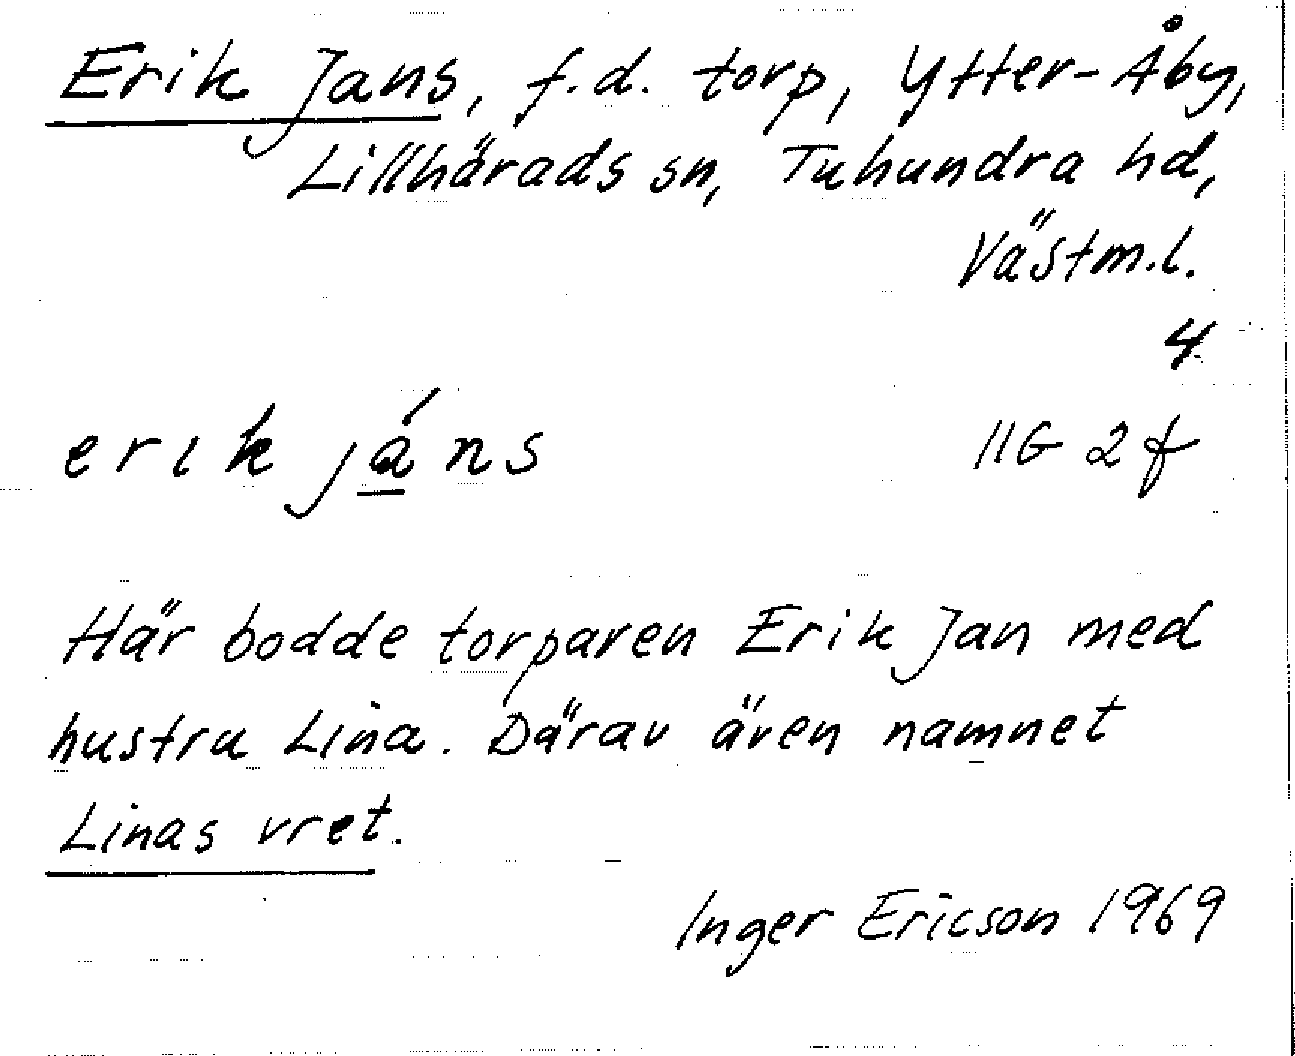 Erik Jans, f.d. torp, Ytter-Åby,
Lillhärads sn, Tuhundra hd,
Västm.l.
4
erık já̱ns
11G 2f
Här bodde torparen Erik Jan med
hustru Lina. Därav även namnet
Linas vret.
Inger Ericson 1969